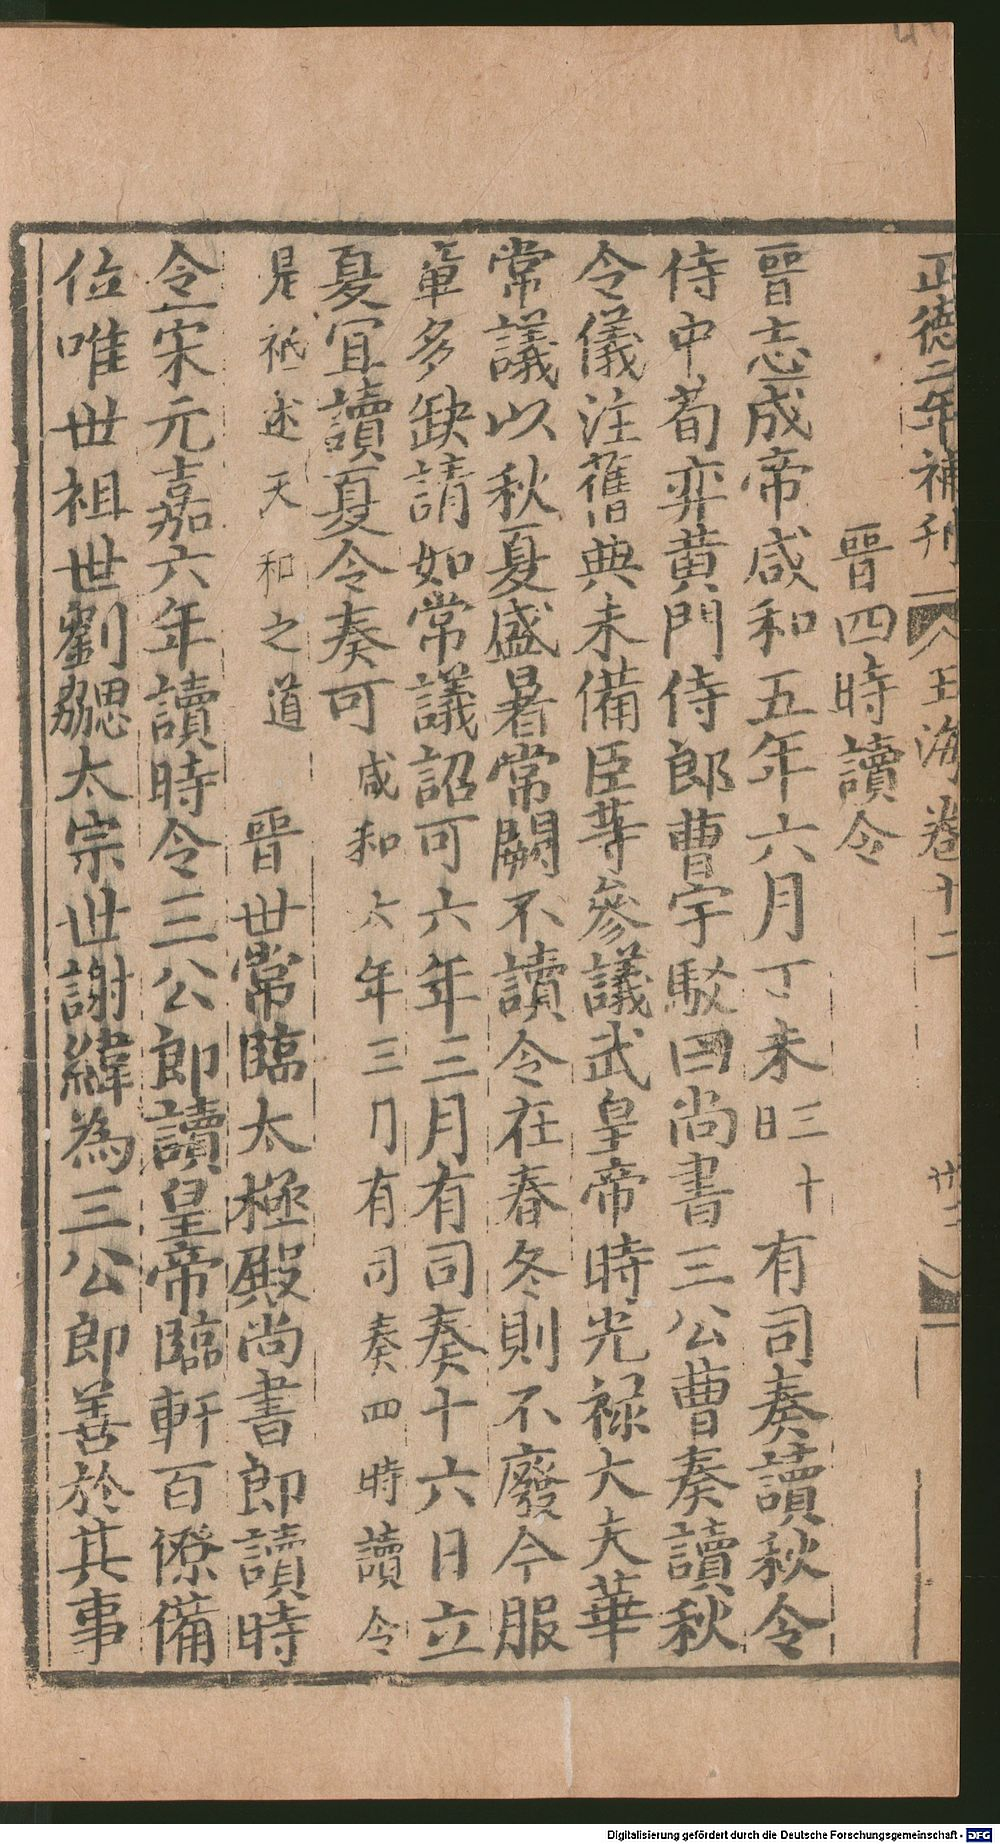 正德二年補刊 玉海卷十二 卅二
晉四時讀令
晉志成帝咸和五年六月丁未三十日有司奏讀秋令
侍中荀弈黃門侍郎曹宇駁曰尚書三公曹奏讀秋
令儀注舊典未備臣等參議武皇帝時光祿大夫華
常議以秋夏盛暑常闕不讀令在春冬則不廢今服
章多缺請如常議詔可六年三月有司奏十六日立
夏宜讀夏令奏可咸和六年三月有司奏四時讀令
是祗述天和之道 晉世常臨太極殿尚書郎讀時
令宋元嘉六年讀時令三公郎讀皇帝臨軒百僚備
位唯世祖世劉勰太宗世謝緯為三公郎善於其事
Digitalisierung gefördert durch die Deutsche Forschungsgemeinschaft - DFG